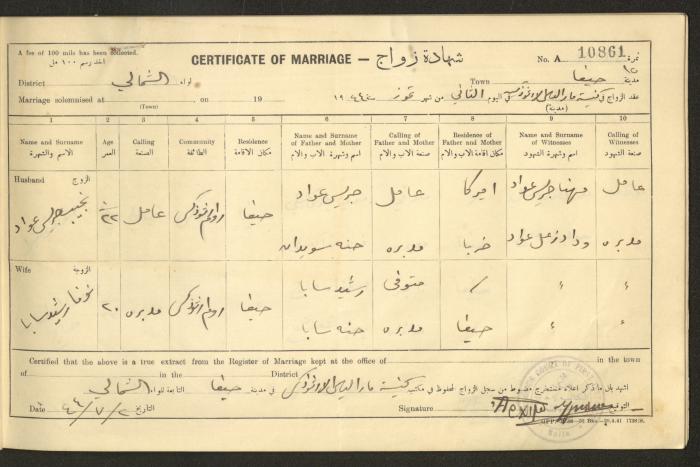 A fee of 100 mils has been collected.
اخذ رسم ١٠٠ مل
CERTIFICATE OF MARRIAGE — شهادة زواج
No. A 10861 نمرة
District الشمالي لواء
Town حيفا مدينة
Marriage solemnised at , on 19
(Town)
عقد الزواج في كنيسة مار الياس في اليوم الثاني من شهر تموز سنة ١٩٤٤
(مدينة)
1 2 3 4 5 6 7 8 9 10
Name and Surname Age Calling Community Residence Name and Surname of Father and Mother Calling of Father and Mother Residence of Father and Mother Name and Surname of Witnesses Calling of Witnesses
الاسم والشهرة العمر الصنعة الطائفة مكان الاقامة اسم وشهرة الاب والام صنعة الاب والام مكان اقامة الاب والام اسم وشهرة الشهود صنعة الشهود
Husband الزوج
نجيب جريس عواد ٢٢ عامل روم ارثوذكس حيفا جريس عواد عامل اميركا مهنا جريس عواد عامل
حنه سويدان مدبره عواد مدبره
Wife الزوجة
رشيد سابا ٢٠ مدبره روم ارثوذكس حيفا رشيد سابا متوفى /
حنه سابا مدبره حيفا
Certified that the above is a true extract from the Register of Marriage kept at the office of in the town
of in the District
اشهد بان ما ذكر اعلاه مستخرج مضبوط من سجل الزواج المحفوظ في مكتب كنيسة مار الياس الارثوذكس في مدينة حيفا التابعة للواء الشمالي
Date ٤٤/٧/٢ التاريخ
Signature التوقيع